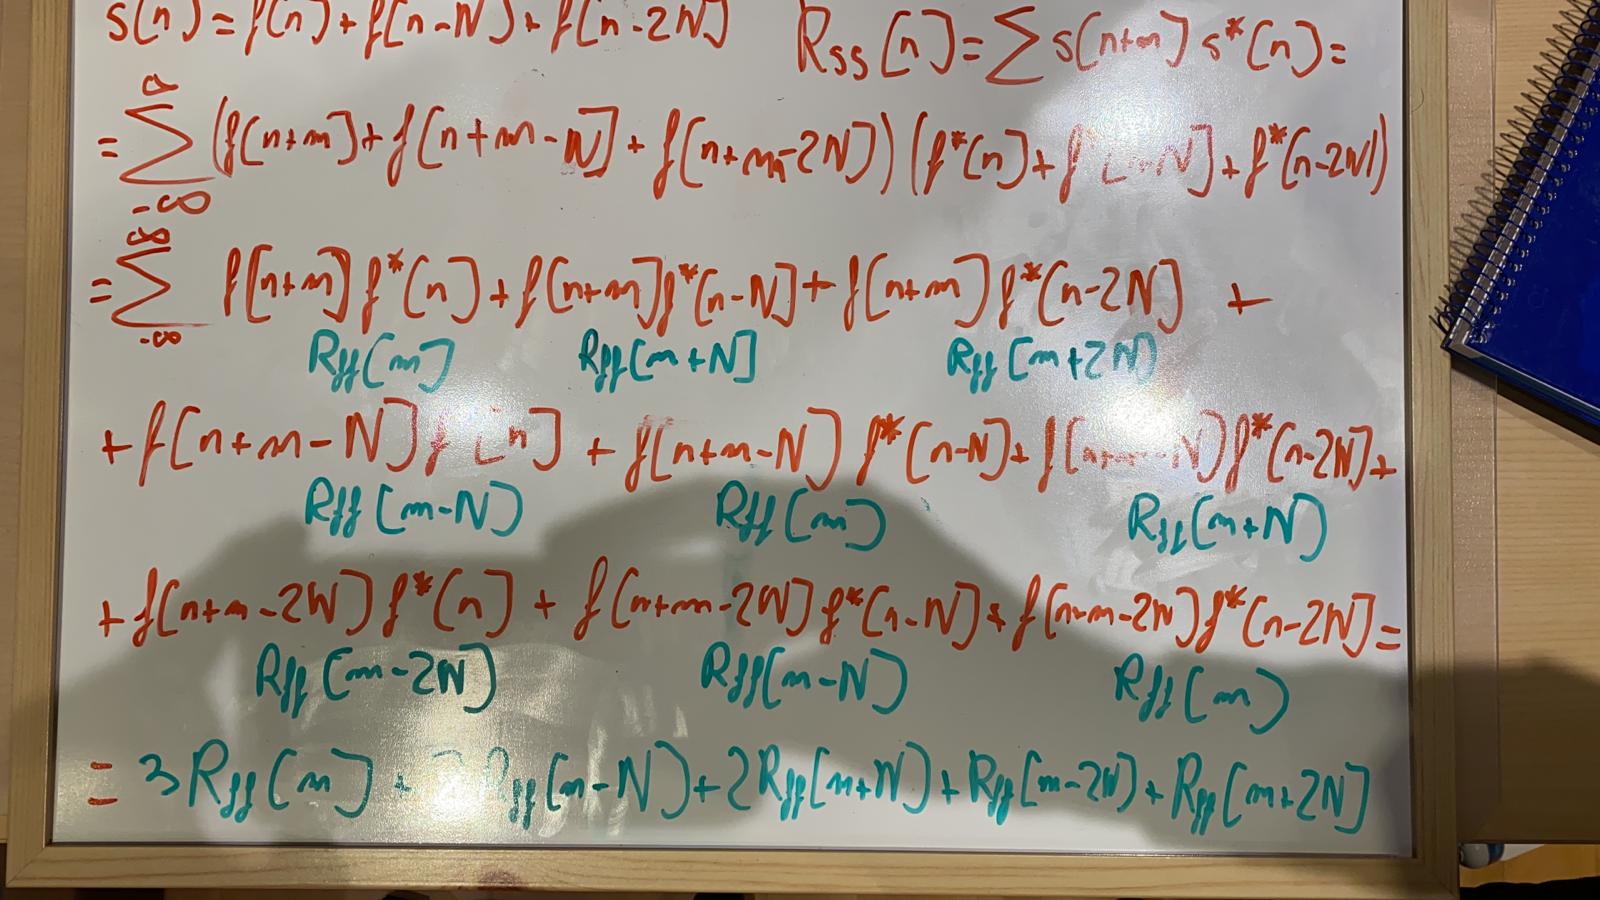 s[n] = f[n] + f[n-N] + f[n-2N] Rss[n] = ∑ s[n+m] s*[n] =
= ∑ -∞ (f[n+m] + f[n+m-N] + f[n+m-2N]) (f*[n] + f[ -N] + f*[n-2N])
= ∑ ∞ -∞ f[n+m] f*[n] + f[n+m] f*[n-N] + f[n+m] f*[n-2N] +
Rff[m] Rff[m+N] Rff[m+2N]
+ f[n+m-N] f[n] + f[n+m-N] f*[n-N] + f[n+m-N] f*[n-2N] +
Rff[m-N] Rff[m] Rff[m+N]
+ f[n+m-2N] f*[n] + f[n+m-2N] f*[n-N] + f[n+m-2N] f*[n-2N] =
Rff[m-2N] Rff[m-N] Rff[m]
= 3Rff[m] + 2Rff[m-N] + 2Rff[m+N] + Rff[m-2N] + Rff[m+2N]